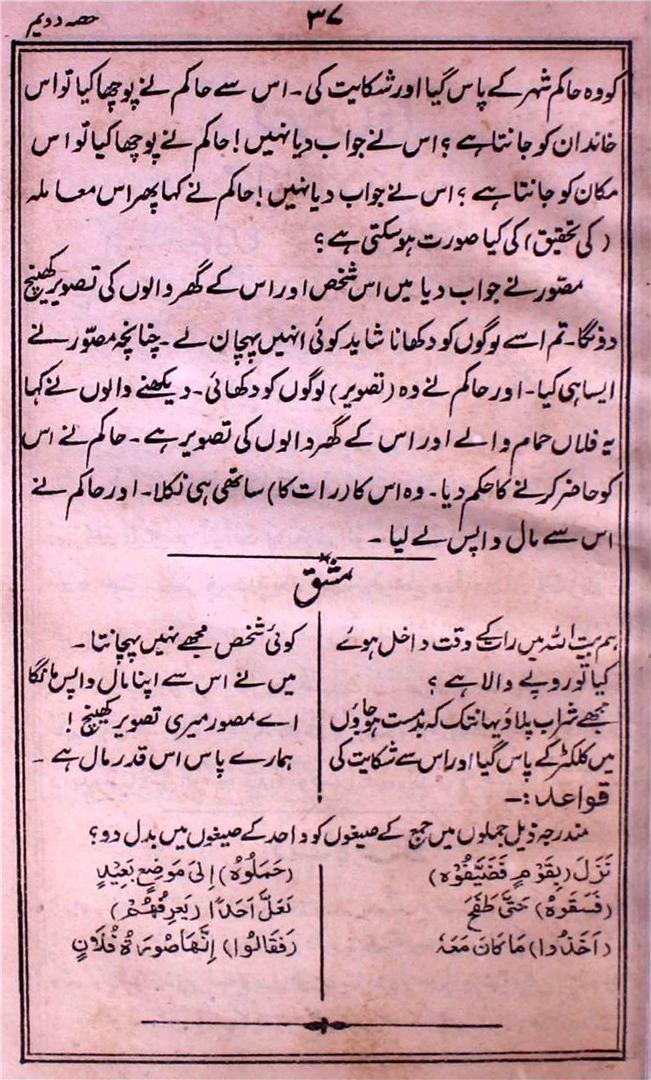 ۳۷
حصہ دویم
کو وہ حاکم شہر کے پاس گیا اور شکایت کی۔ اس سے حاکم نے پوچھا کیا تو اس
خاندان کو جانتا ہے؟ اس نے جواب دیا نہیں! حاکم نے پوچھا کیا تو اس
مکان کو جانتا ہے؟ اس نے جواب دیا نہیں! حاکم نے کہا پھر اس معاملہ
(کی تحقیق) کی کیا صورت ہوسکتی ہے؟
مصوّر نے جواب دیا میں اس شخص اور اس کے گھر والوں کی تصویر کھینچ
دونگا۔ تم اسے لوگوں کو دکھانا شاید کوئی انہیں پہچان لے۔ چنانچہ مصوّر نے
ایسا ہی کیا۔ اور حاکم نے وہ (تصویر) لوگوں کو دکھائی۔ دیکھنے والوں نے کہا
یہ فلاں حمام والے اور اس کے گھر والوں کی تصویر ہے۔ حاکم نے اس
کو حاضر کرنے کا حکم دیا۔ وہ اس کا (رات کا) ساتھی ہی نکلا۔ اور حاکم نے
اس سے مال واپس لے لیا۔
مشق
ہم بیت اللہ میں رات کے وقت داخل ہوئے
کیا تو روپے والا ہے؟
مجھے شراب پلاؤ یہانتک کہ بدمست ہوجاؤں
میں کلکٹر کے پاس گیا اور اس سے شکایت کی
کوئی شخص مجھے نہیں پہچانتا۔
میں نے اس سے اپنا مال واپس مانگا
اے مصور میری تصویر کھینچ!
ہمارے پاس اس قدر مال ہے۔
قواعد:۔
مندرجہ ذیل جملوں میں جمع کے صیغوں کو واحد کے صیغوں میں بدل دو؟
نَزَلَ (بِقَوْمٍ فَضَيَّفُوْهُ)
(فَسَقَوْهُ) حَتّٰی طَفَحَ
(اَخَذُوا) مَا كَانَ مَعَهٗ
(حَمَلُوْهُ) اِلیٰ مَوْضِعٍ بَعِيْدٍ
لَعَلَّ اَحَدًا (يَعْرِفُهُمْ)
(فَقَالُوا) اِنَّهَا صُوْرَةُ فُلَانٍ